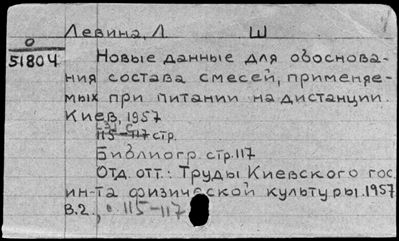 Левина, Л. Ш
0
51804
Новые данные для обоснова-
ния состава смесей, применяе-
мых при питании на дистанции.
Киев, 1957
115-117 стр.
Библиогр. стр. 117
Отд. отт.: Труды Киевского гос.
ин-та физической культуры. 1957
В.2., с. 115-117